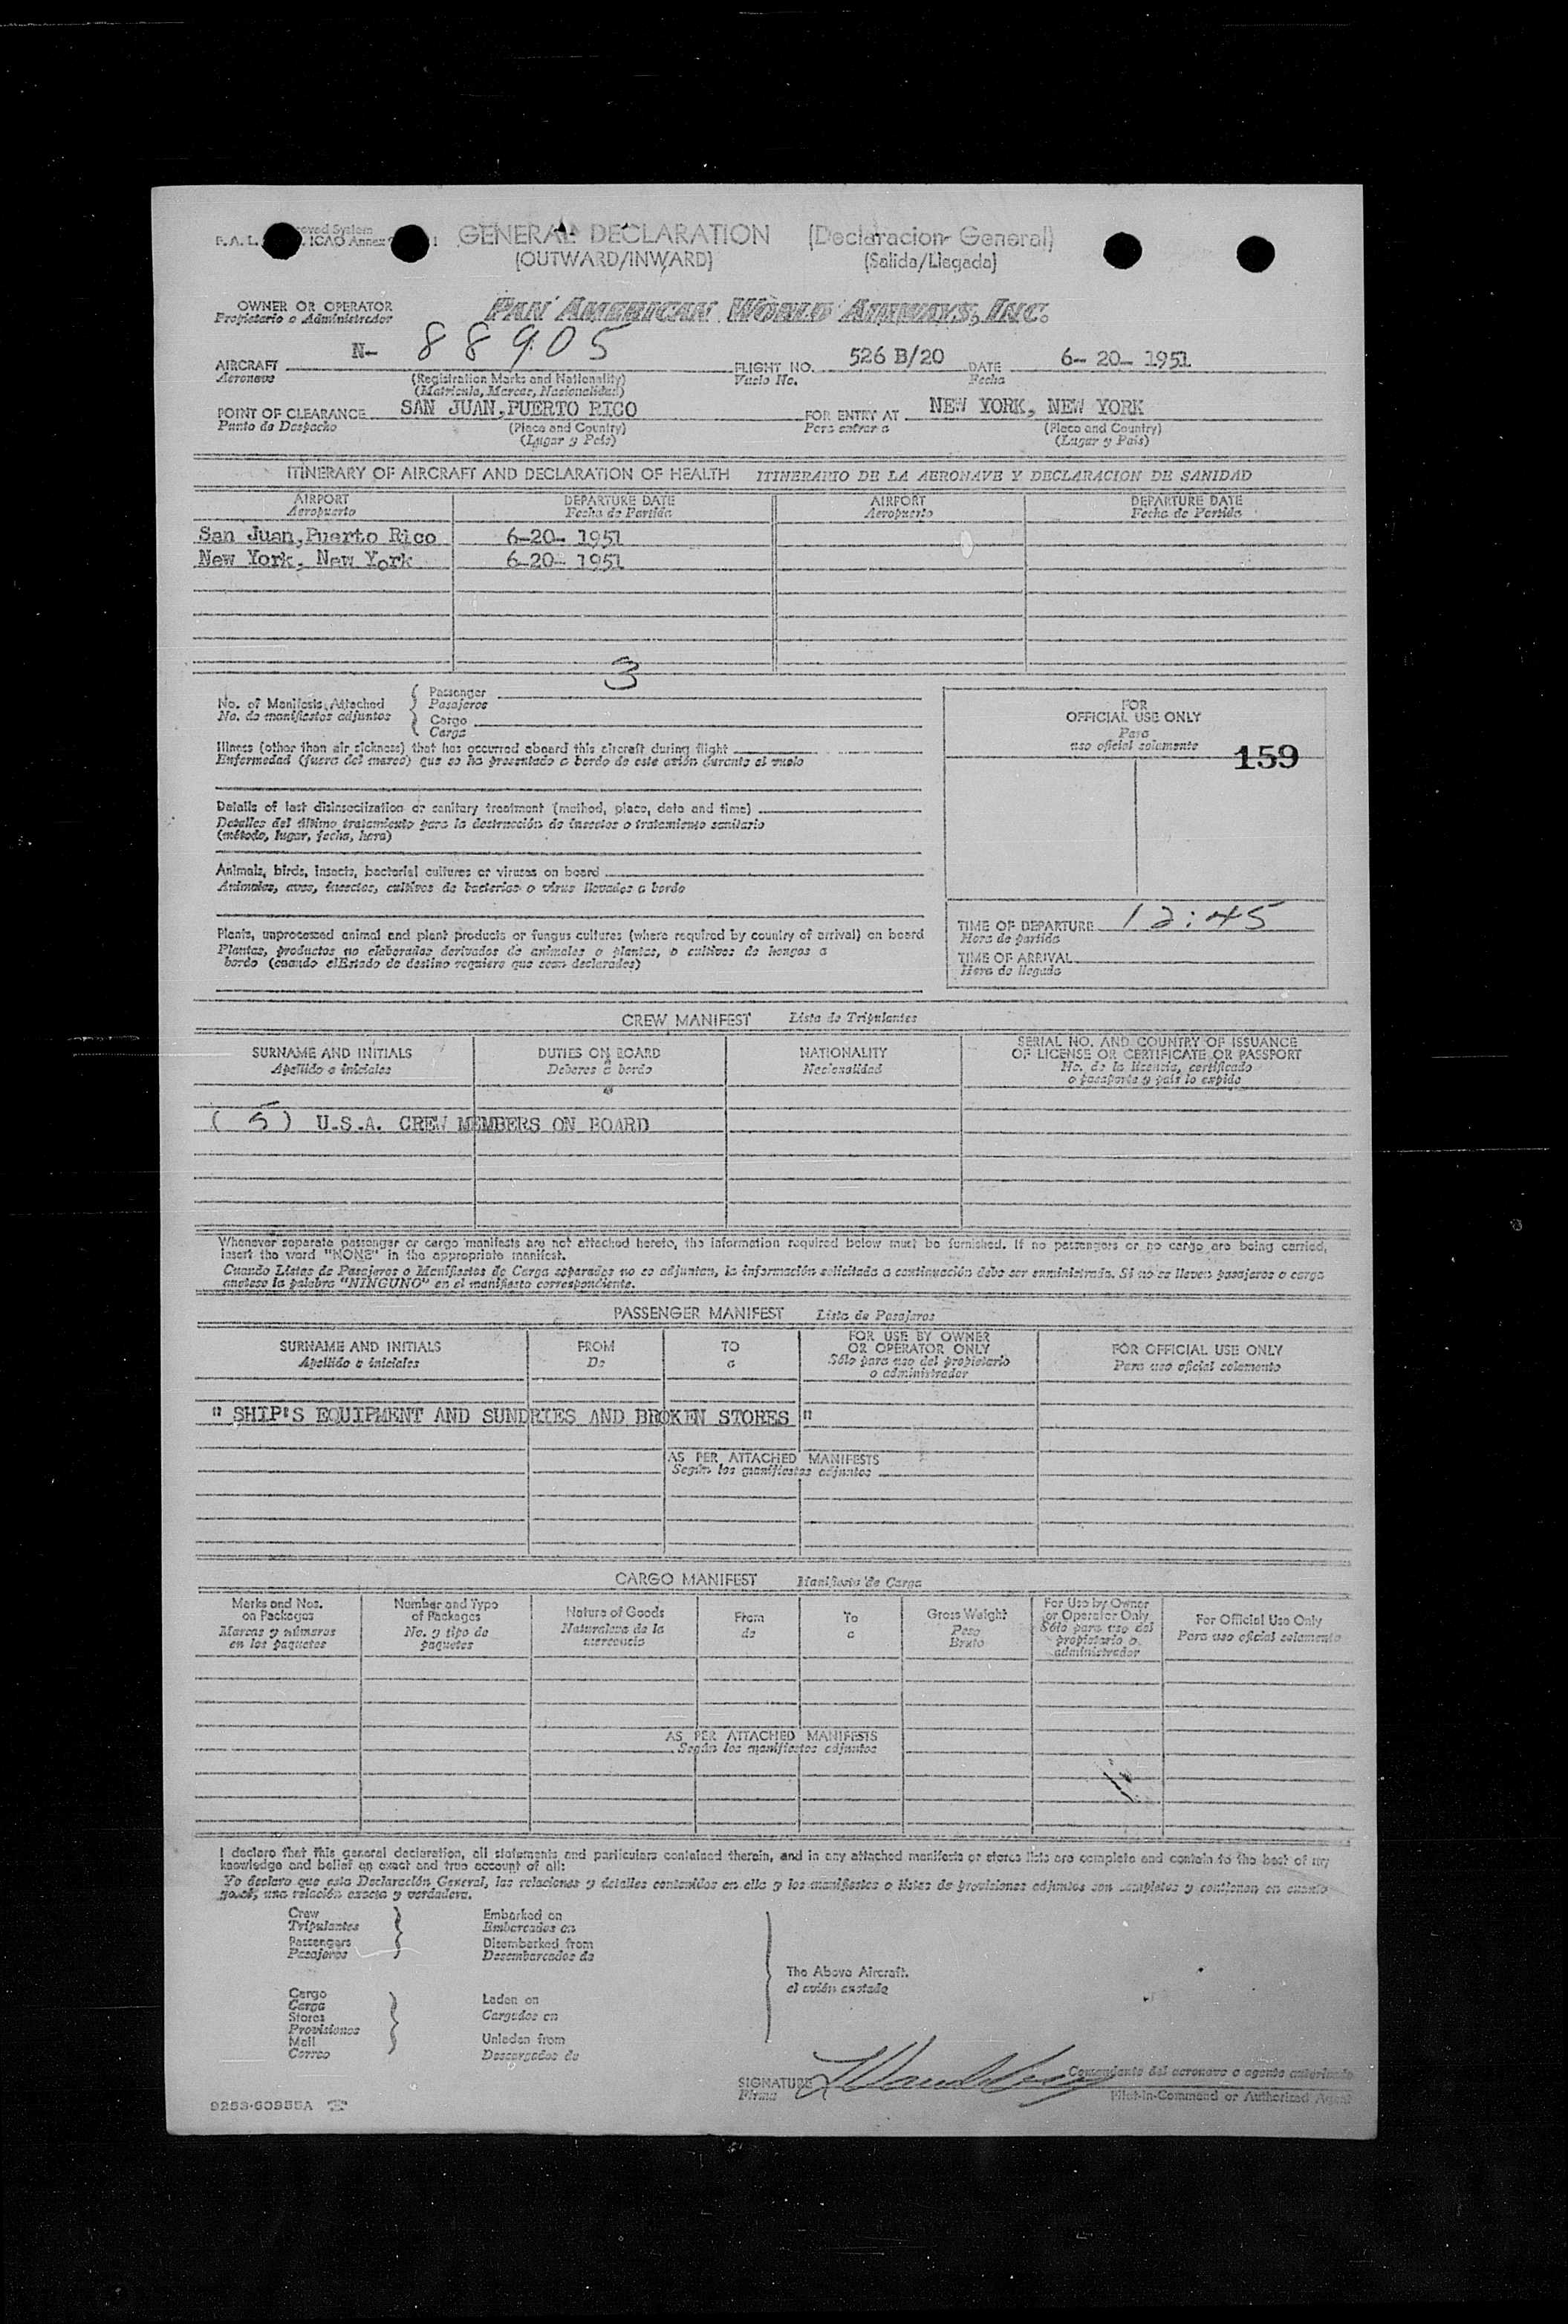 GENERAL DECLARATION (Declaracion General)
(OUTWARD/INWARD) (Salida/Llegada)
F. A. L. ICAO Annex
OWNER OR OPERATOR PAN AMERICAN WORLD AIRWAYS, INC.
Propietario o Administrador
AIRCRAFT N- 88905 FLIGHT NO. 526 B/20 DATE 6- 20- 1951
Aeronave (Registration Marks and Nationality) Vuelo No. Fecha
(Matricula, Marcas, Nacionalidad)
POINT OF CLEARANCE SAN JUAN, PUERTO RICO FOR ENTRY AT NEW YORK, NEW YORK
Punto de Despacho (Place and Country) Para entrar a (Place and Country)
(Lugar y Pais) (Lugar y Pais)
ITINERARY OF AIRCRAFT AND DECLARATION OF HEALTH ITINERARIO DE LA AERONAVE Y DECLARACION DE SANIDAD
AIRPORT DEPARTURE DATE AIRPORT DEPARTURE DATE
Aeropuerto Fecha de Partida Aeropuerto Fecha de Partida
San Juan, Puerto Rico 6-20- 1951
New York, New York 6-20- 1951
No. of Manifests Attached Passenger 3
No. de manifiestos adjuntos Pasajeros
Cargo
Carga
Illness (other than air sickness) that has occurred aboard this aircraft during flight
Enfermedad (fuera del mareo) que se ha presentado a bordo de este avión durante el vuelo
Details of last disinsectization or sanitary treatment (method, place, date and time)
Detalles del último tratamiento para la destrucción de insectos o tratamiento sanitario
(método, lugar, fecha, hora)
Animals, birds, insects, bacterial cultures or viruses on board
Animales, aves, insectos, cultivos de bacterias o virus llevados a bordo
Plants, unprocessed animal and plant products or fungus cultures (where required by country of arrival) on board
Plantas, productos no elaborados derivados de animales o plantas, o cultivos de hongos a
bordo (cuando elEstado de destino requiere que sean declarados)
FOR
OFFICIAL USE ONLY
Para
uso oficial solamente
159
TIME OF DEPARTURE 12:45
Hora de partida
TIME OF ARRIVAL
Hora de llegada
CREW MANIFEST Lista de Tripulantes
SURNAME AND INITIALS DUTIES ON BOARD NATIONALITY SERIAL NO. AND COUNTRY OF ISSUANCE
OF LICENSE OR CERTIFICATE OR PASSPORT
Apellido e iniciales Deberes a bordo Nacionalidad No. de la licencia, certificado
o pasaporte y pais lo expide
( 5 ) U.S.A. CREW MEMBERS ON BOARD
Whenever separate passenger or cargo manifests are not attached hereto, the information required below must be furnished. If no passengers or no cargo are being carried,
insert the word "NONE" in the appropriate manifest.
Cuando Listas de Pasajeros o Manifiestos de Carga separados no se adjuntan, la información solicitada a continuación debe ser suministrada. Si no se lleven pasajeros o carga
anotese la palabra "NINGUNO" en el manifiesto correspondiente.
PASSENGER MANIFEST Lista de Pasajeros
SURNAME AND INITIALS FROM TO FOR USE BY OWNER
OR OPERATOR ONLY FOR OFFICIAL USE ONLY
Apellido e iniciales De a Sólo para uso del propietario
o administrador Para uso oficial solamente
" SHIP'S EQUIPMENT AND SUNDRIES AND BROKEN STORES "
AS PER ATTACHED MANIFESTS
Según los manifiestos adjuntos
CARGO MANIFEST Manifiesto de Carga
Marks and Nos.
on Packages
Marcas y números
en los paquetes
Number and Type
of Packages
No. y tipo de
paquetes
Nature of Goods
Naturaleza de la
mercancia
From
de
To
a
Gross Weight
Peso
Bruto
For Use by Owner
or Operator Only
Sólo para uso del
propietario o
administrador
For Official Use Only
Para uso oficial solamente
AS PER ATTACHED MANIFESTS
Según los manifiestos adjuntos
I declare that this general declaration, all statements and particulars contained therein, and in any attached manifests or stores lists are complete and contain to the best of my
knowledge and belief an exact and true account of all:
Yo declaro que esta Declaración General, las relaciones y detalles contenidos en ella y los manifiestos o listas de provisiones adjuntos son completos y contienen en cuanto
yo sé, una relación exacta y verdadera.
Crew Embarked on
Tripulantes Embarcados en
Passengers Disembarked from
Pasajeros Desembarcados de
The Above Aircraft.
el avión anotado
Cargo
Carga Laden on
Stores Cargados en
Provisiones
Mail Unladen from
Correo Descargados de
SIGNATURE Comandante del aeronave o agente autorizado
Firma Pilot-in-Command or Authorized Agent
9253-60355A